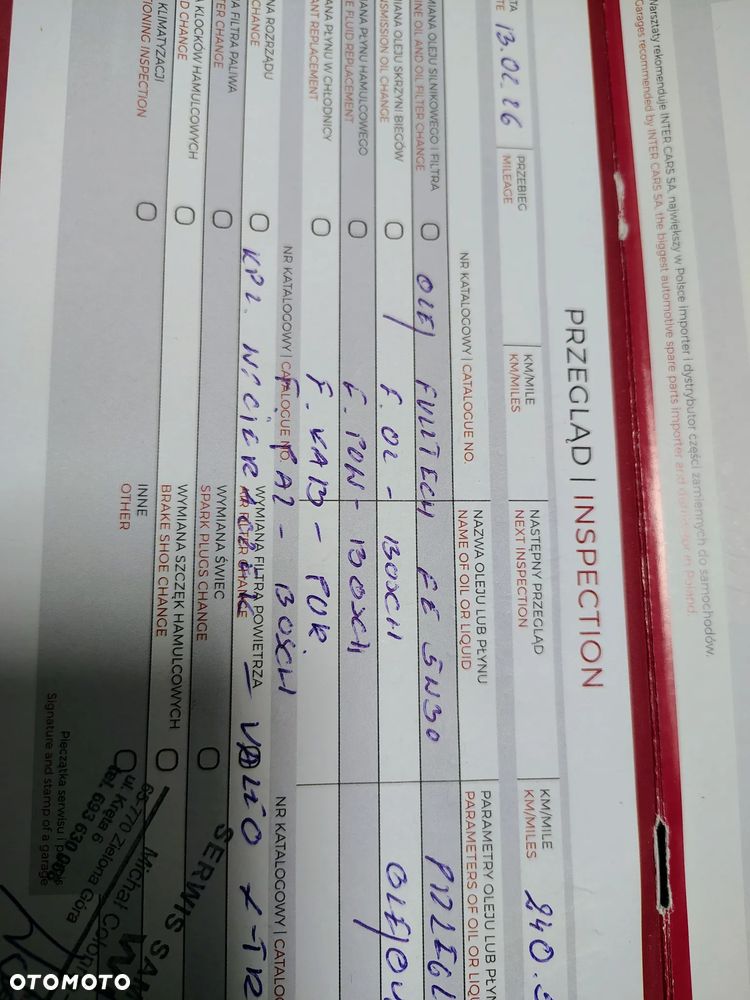 Warsztaty rekomenduje INTER CARS SA, największy w Polsce importer i dystrybutor części zamiennych do samochodów.
Garages recommended by INTER CARS SA, the biggest automotive spare parts importer and distributor in Poland.
PRZEGLĄD | INSPECTION
13.02.26
PRZEBIEG
MILEAGE
KM/MILE
KM/MILES
NASTĘPNY PRZEGLĄD
NEXT INSPECTION
KM/MILE
KM/MILES
240.
NR KATALOGOWY | CATALOGUE NO.
NAZWA OLEJU LUB PŁYNU
NAME OF OIL OR LIQUID
PARAMETRY OLEJU LUB PŁYN
PARAMETERS OF OIL OR LIQU
MIANA OLEJU SILNIKOWEGO I FILTRA
INE OIL AND OIL FILTER CHANGE
OLEJ FULLTECH FE 5W30
IANA OLEJU SKRZYNI BIEGÓW
NSMISSION OIL CHANGE
F. OL - BOSCH
ANA PŁYNU HAMULCOWEGO
E FLUID REPLACEMENT
F. POW - BOSCH
ANA PŁYNU W CHŁODNICY
ANT REPLACEMENT
F. KAB - PUR.
NR KATALOGOWY | CATALOGUE NO.
F. PAL - BOSCH
NR KATALOGOWY | CATALO
NA ROZRZĄDU
CHANGE
WYMIANA FILTRA POWIETRZA
AIR FILTER CHANGE
KPL. WYCIERACZEK - VALEO X-TR
A FILTRA PALIWA
TER CHANGE
WYMIANA ŚWIEC
SPARK PLUGS CHANGE
A KLOCKÓW HAMULCOWYCH
D CHANGE
WYMIANA SZCZĘK HAMULCOWYCH
BRAKE SHOE CHANGE
KLIMATYZACJI
TIONING INSPECTION
INNE
OTHER
SERWIS SAM
Michał
65-770 Zielona Góra
ul. Kręta 6
tel. 693 630
Pieczątka serwisu i podpis
Signature and stamp of a garage
OTOMOTO